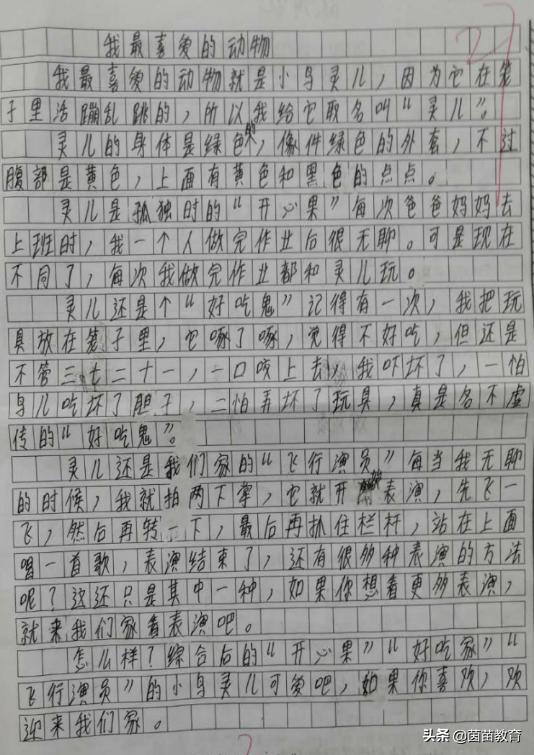 我最喜爱的动物
我最喜爱的动物就是小鸟灵儿，因为它在笼
子里活蹦乱跳的，所以我给它取名叫“灵儿”。
灵儿的身体是绿色的，像件绿色的外套，不过
腹部是黄色，上面有黄色和黑色的点点。
灵儿是孤独时的“开心果”每次爸爸妈妈去
上班时，我一个人做完作业后很无聊。可是现在
不同了，每次我做完作业都和灵儿玩。
灵儿还是个“好吃鬼”记得有一次，我把玩
具放在笼子里，它啄了啄，觉得不好吃，但还是
不管三七二十一，一口咬上去，我吓坏了，一怕
鸟儿吃坏了胆子，二怕弄坏了玩具，真是名不虚
传的“好吃鬼”。
灵儿还是我们家的“飞行演员”每当我无聊
的时候，我就拍两下掌，它就开始表演，先飞一
飞，然后再转一下，最后再抓住栏杆，站在上面
唱一首歌，表演结束了，还有很多种表演的方法
呢？这还只是其中一种，如果你想看更多表演，
就来我们家看表演吧。
怎么样？综合后的“开心果”“好吃家”“
飞行演员”的小鸟灵儿可爱吧，如果你喜欢，欢
迎来我们家。
头条@茵苗教育